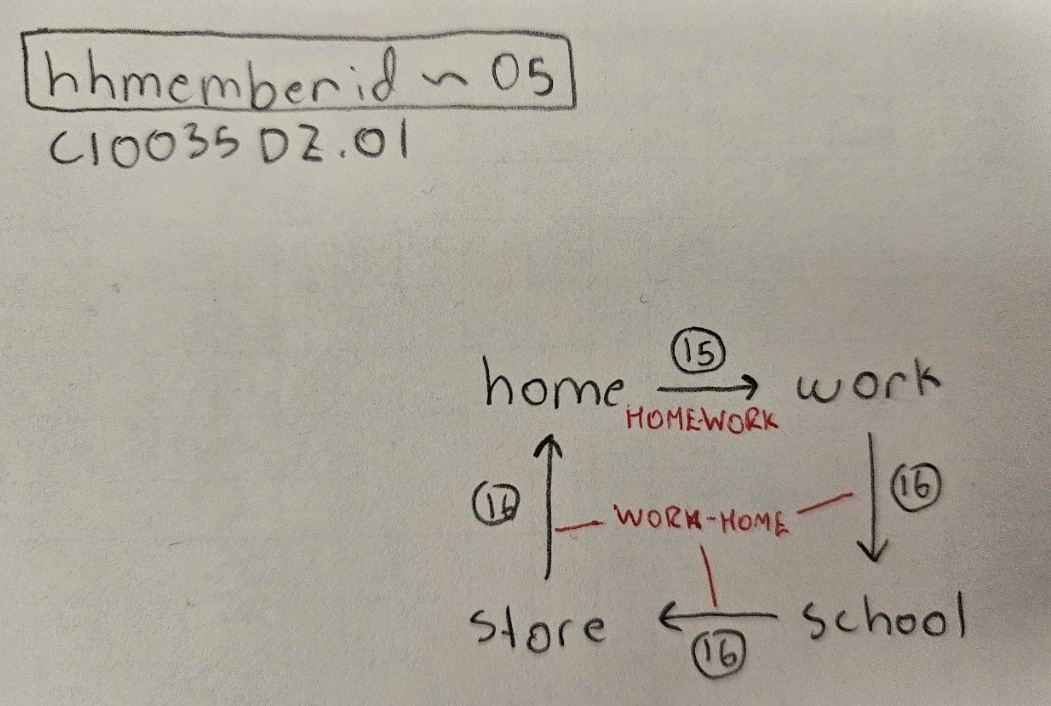 hhmemberid ~ 05
C10035DZ.01
15
home → work
HOME-WORK
16 16
WORK-HOME
store ← school
16